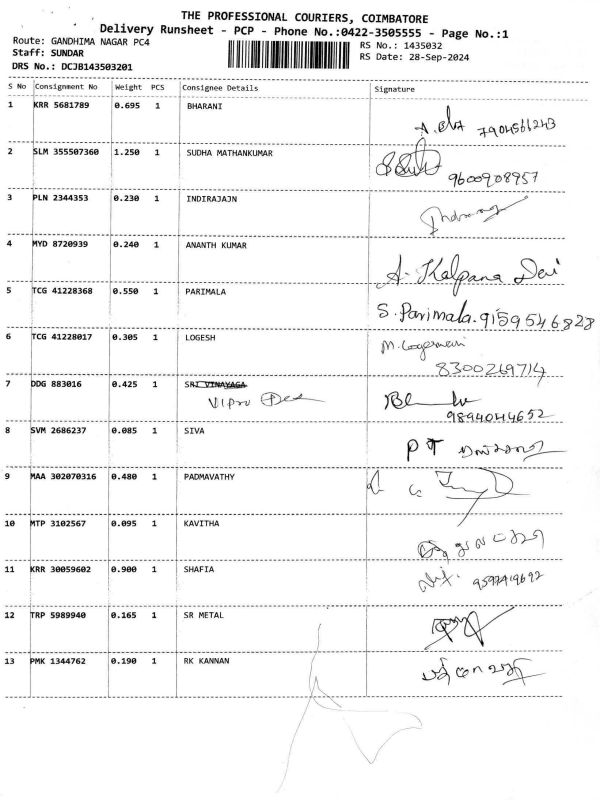 THE PROFESSIONAL COURIERS, COIMBATORE
Delivery Runsheet - PCP - Phone No.:0422-3505555 - Page No.:1
Route: GANDHIMA NAGAR PC4
RS No.: 1435032
Staff: SUNDAR
RS Date: 28-Sep-2024
DRS No.: DCJB143503201
S No Consignment No Weight PCS Consignee Details Signature
1 KRR 5681789 0.695 1 BHARANI
7904566243
2 SLM 355507360 1.250 1 SUDHA MATHANKUMAR
9600908957
3 PLN 2344353 0.230 1 INDIRAJAJN
4 MYD 8720939 0.240 1 ANANTH KUMAR
A. Kalpana Devi
5 TCG 41228368 0.550 1 PARIMALA
S. Parimala. 9159546828
6 TCG 41228017 0.305 1 LOGESH
8300269714
7 DDG 883016 0.425 1 SRI VINAYAGA
9894044652
8 SVM 2686237 0.085 1 SIVA
PT
9 MAA 302070316 0.480 1 PADMAVATHY
10 MTP 3102567 0.095 1 KAVITHA
11 KRR 30059602 0.900 1 SHAFIA
12 TRP 5989940 0.165 1 SR METAL
13 PMK 1344762 0.190 1 RK KANNAN